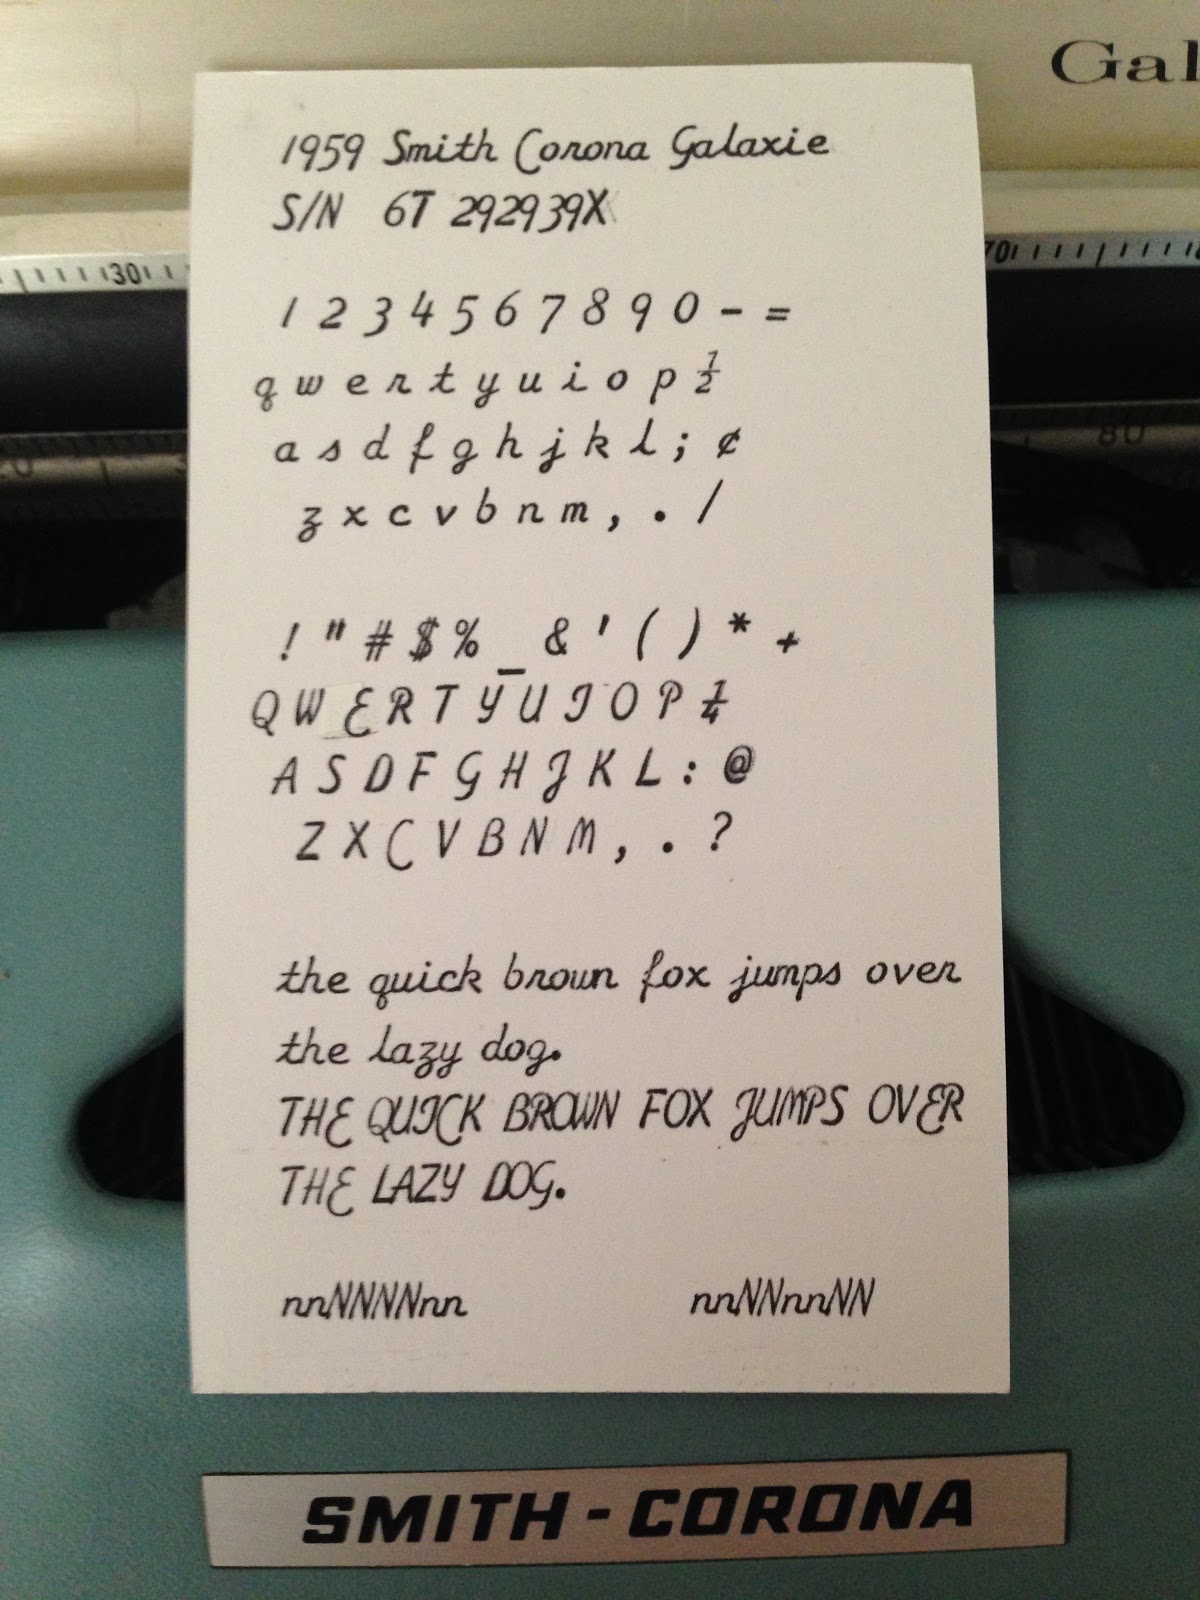 Gal
1959 Smith Corona Galaxie
S/N 6T 292939X
30 70
1 2 3 4 5 6 7 8 9 0 - =
q w e r t y u i o p ½
80
a s d f g h j k l ; ¢
20
z x c v b n m , . /
! " # $ % _ & ' ( ) * +
Q W E R T Y U I O P ¼
A S D F G H J K L : @
Z X C V B N M , . ?
the quick brown fox jumps over
the lazy dog.
THE QUICK BROWN FOX JUMPS OVER
THE LAZY DOG.
nnNNNNnn nnNNnnNN
SMITH-CORONA